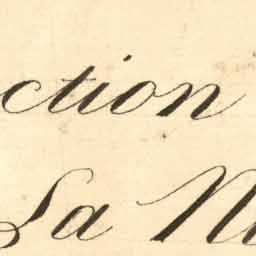 ction
La N